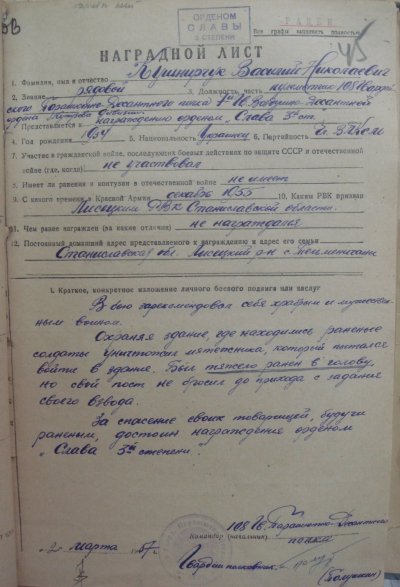 ОРДЕНОМ
СЛАВЫ
3 СТЕПЕНИ
РАНЕН
Все графы писать полностью
45
НАГРАДНОЙ ЛИСТ
1. Фамилия, имя и отчество Василий Николаевич
2. Звание рядовой 3. Должность, часть 108 Гвардей-
ского Парашютно-Десантного полка 7й Гв. Воздушно-Десантной
ордена
4. Представляется к награждению орденом „Слава 3й ст.
Год рождения 1934 5. Национальность Украинец 6. Партийность чл. ВЛКСМ
7. Участие в гражданской войне, последующих боевых действиях по защите СССР и отечественной
войне (где, когда) не участвовал
8. Имеет ли ранения и контузии в отечественной войне не имеет
9. С какого времени в Красной Армии декабрь 1955 10. Каким РВК призван
Лисецким РВК Станиславской области.
11. Чем ранее награжден (за какие отличия) не награждался
12. Постоянный домашний адрес представляемого к награждению и адрес его семьи
Станиславская обл Лисецкий р-н с.
I. Краткое, конкретное изложение личного боевого подвига или заслуг
В бою зарекомендовал себя храбрым и мужествен-
ным воином.
Охраняя здание, где находились раненые
солдаты уничтожил мятежника, который пытался
войти в здание. Был тяжело ранен в голову,
но свой пост не бросил до прихода с задания
своего взвода.
За спасение своих товарищей, будучи
раненым, достоин награждения орденом
„Слава 3й степени".
108 Гв. Парашютно-Десантного
Командир (начальник) полка
Гвардии полковник
„2" марта 1957г.